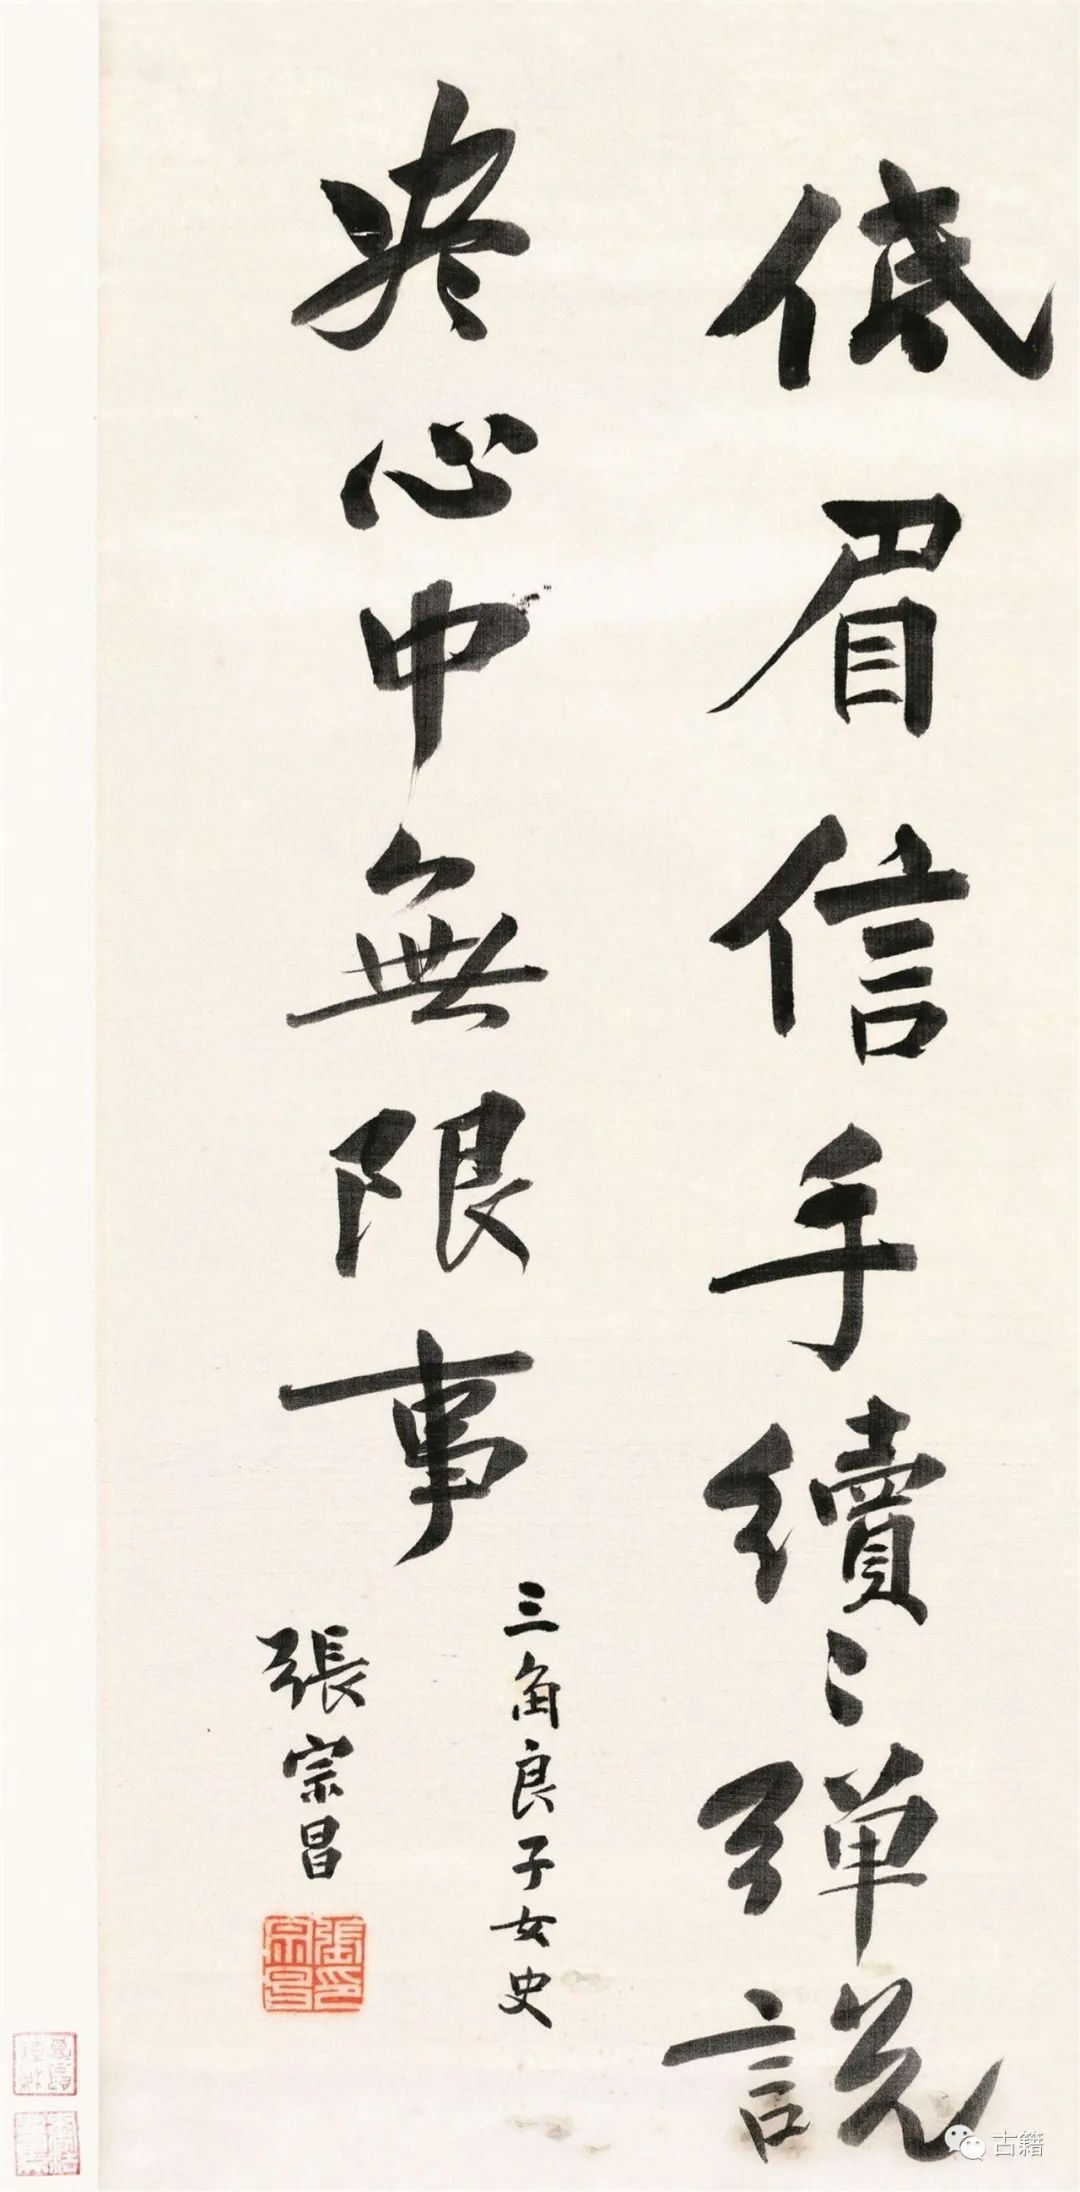 低眉信手續〻弹説
尽心中無限事
三角良子女史
張宗昌
張宗昌印
古籍